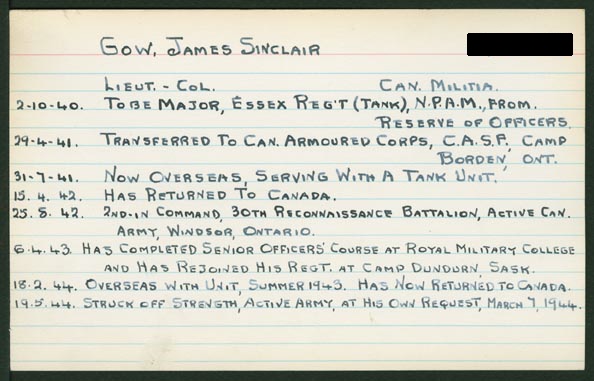 GOW, JAMES SINCLAIR
LIEUT. - COL. CAN. MILITIA.
2-10-40. TO BE MAJOR, ESSEX REG'T (TANK), N.P.A.M., FROM.
RESERVE OF OFFICERS.
29-4-41. TRANSFERRED TO CAN. ARMOURED CORPS, C.A.S.F., CAMP
BORDEN, ONT.
31-7-41. NOW OVERSEAS, SERVING WITH A TANK UNIT.
15. 4. 42. HAS RETURNED TO CANADA.
25. 8. 42. 2ND-IN COMMAND, 30TH RECONNAISSANCE BATTALION, ACTIVE CAN.
ARMY, WINDSOR, ONTARIO.
6.4.43. HAS COMPLETED SENIOR OFFICERS' COURSE AT ROYAL MILITARY COLLEGE
AND HAS REJOINED HIS REGT. AT CAMP DUNDURN, SASK.
18.2.44. OVERSEAS WITH UNIT, SUMMER 1943. HAS NOW RETURNED TO CANADA.
19.5.44. STRUCK OFF STRENGTH, ACTIVE ARMY, AT HIS OWN REQUEST, MARCH 7, 1944.